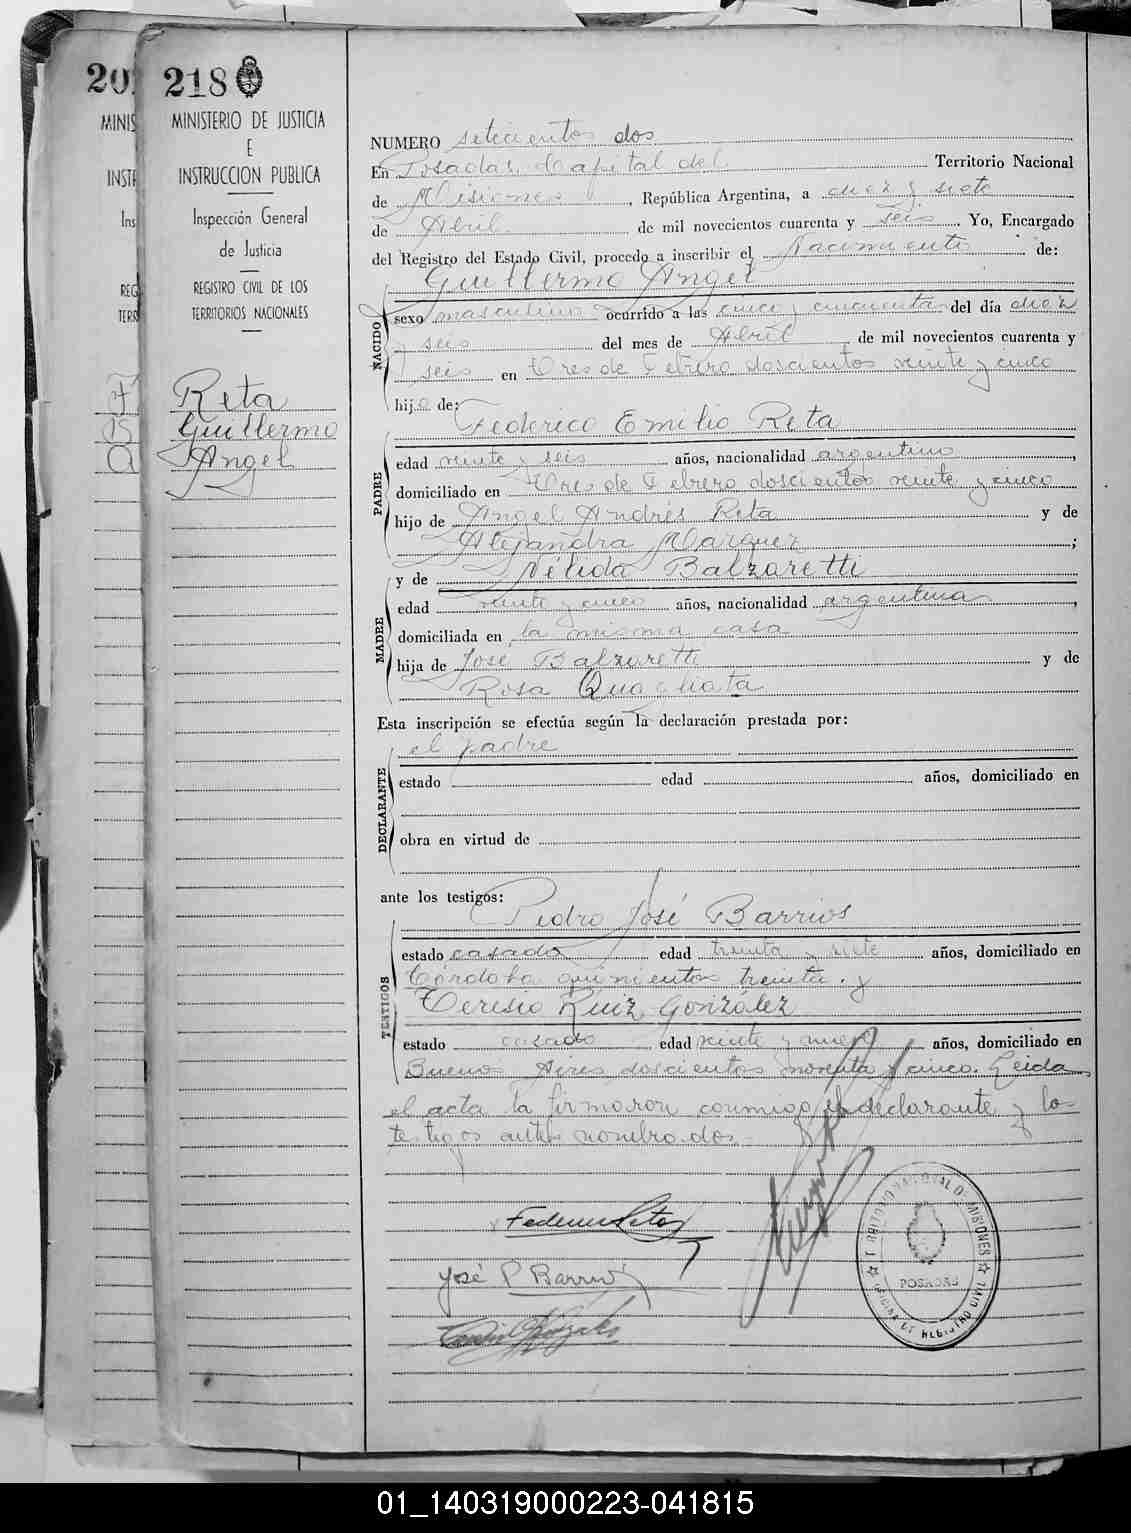 20
218
MINIS
MINISTERIO DE JUSTICIA
E
INSTR
INSTRUCCION PUBLICA
Ins
Inspección General
de Justicia
REG
REGISTRO CIVIL DE LOS
TERR
TERRITORIOS NACIONALES
Reta
Guillermo
Angel
NUMERO setecientos dos
En Posadas, capital del Territorio Nacional
de Misiones, República Argentina, a diez y siete
de Abril de mil novecientos cuarenta y seis. Yo, Encargado
del Registro del Estado Civil, procedo a inscribir el Nacimiento de:
Guillermo Angel
NACIDO
sexo masculino ocurrido a las cinco y cincuenta del día diez
y seis del mes de Abril de mil novecientos cuarenta y
seis en Tres de Febrero doscientos veinte y cinco
hijo de:
Federico Emilio Reta
PADRE
edad veinte y seis años, nacionalidad argentino,
domiciliado en Tres de Febrero doscientos veinte y cinco
hijo de Angel Andrés Reta y de
Alejandra Marquez;
y de Nélida Balzaretti
MADRE
edad veinte y cinco años, nacionalidad argentina,
domiciliada en la misma casa
hija de José Balzaretti y de
Rosa Quagliata
Esta inscripción se efectúa según la declaración prestada por:
el padre
DECLARANTE
estado edad años, domiciliado en
obra en virtud de
ante los testigos:
Pedro José Barrios
TESTIGOS
estado casado edad treinta y siete años, domiciliado en
Córdoba quinientos treinta. y
Teresio Ruiz Gonzalez
estado casado edad veinte y nueve años, domiciliado en
Buenos Aires doscientos noventa y cinco. Leida
el acta la firmaron conmigo el declarante y los
testigos antes nombrados.
José P Barrios
TERRITORIO NACIONAL DE MISIONES
POSADAS
OFICINA DE REGISTRO CIVIL
01_140319000223-041815